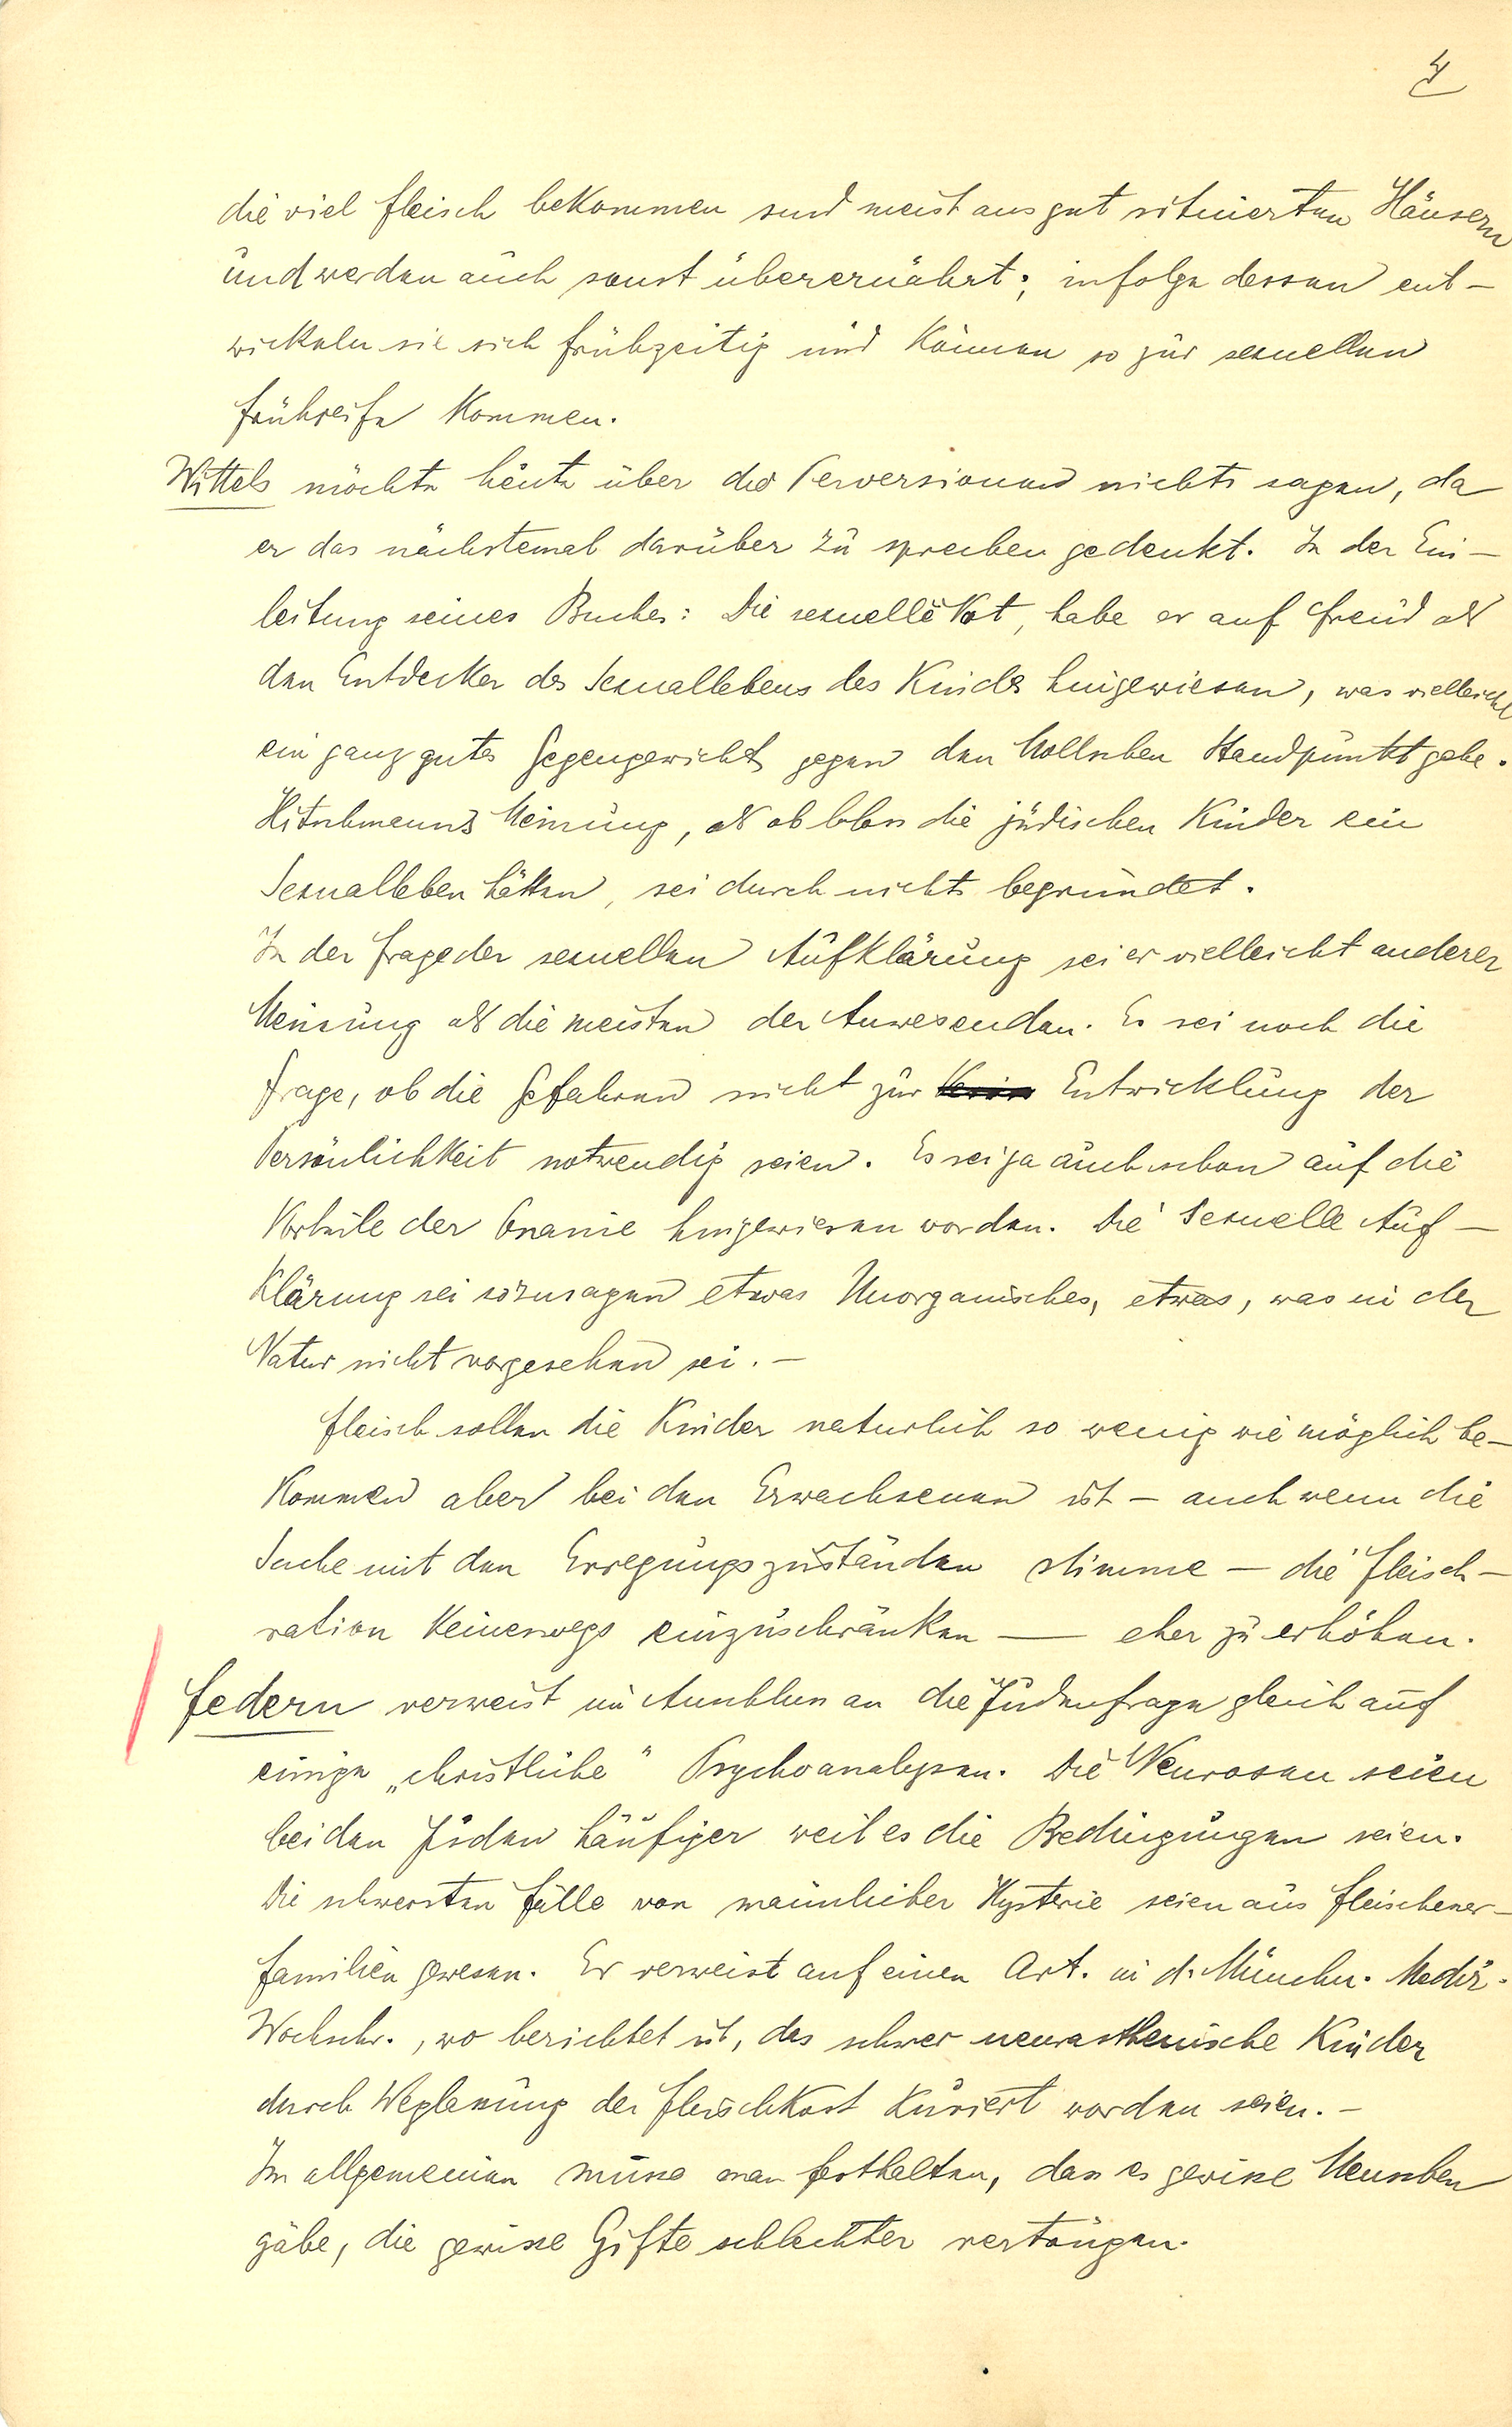 4
die viel Fleisch bekommen sind meist aus gut situierten Häusern
und werden auch sonst überernährt; infolge dessen ent-
wickeln sie sich frühzeitig und können so zur sexuellen
Frühreife kommen.
Wittels möchte heute über die Perversionen nichts sagen, da
er das nächstemal darüber zu sprechen gedenkt. In der Ein-
leitung seines Buches: Die sexuelle Not, habe er auf Freud als
den Entdecker des Sexuallebens des Kindes hingewiesen, was vielleicht
ein ganz gutes Gegengewicht gegen den Mollschen Standpunkt gebe.
Hitschmanns Meinung, als ob bloss die jüdischen Kinder ein
Sexualleben hätten, sei durch nichts begründet.
In der Frage der sexuellen Aufklärung sei er vielleicht anderer
Meinung als die meisten der Anwesenden. Es sei noch die
Frage, ob die Gefahren nicht zur Entwicklung der
Persönlichkeit notwendig seien. Es sei ja auch schon auf die
Vorteile der Onanie hingewiesen worden. Die sexuelle Auf-
klärung sei sozusagen etwas Unorganisches, etwas, was in der
Natur nicht vorgesehen sei. -
Fleisch sollen die Kinder natürlich so wenig wie möglich be-
kommen aber bei den Erwachsenen ist - auch wenn die
Sache mit den Erregungszuständen stimme - die Fleisch-
ration keineswegs einzuschränken - eher zu erhöhen.
Federn verweist im Anschluss an die Judenfrage gleich auf
einige „christliche" Psychoanalysen. Die Neurosen seien
bei den Juden häufiger weil es die Bedingungen seien.
Die schwersten Fälle von männlicher Hysterie seien aus Fleischener-
familien gewesen. Er verweist auf einen Art. in d. Münchn. Mediz.
Wochschr., wo berichtet ist, das schwer neurasthenische Kinder
durch Weglassung der Fleischkost kuriert worden seien. -
Im allgemeinen müsse man festhalten, dass es gewisse Menschen
gäbe, die gewisse Gifte schlechter vertrügen.